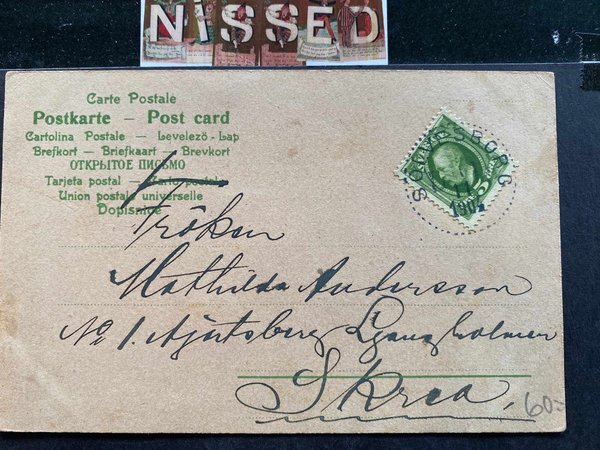 NISSED
Carte Postale
Postkarte – Post card
Cartolina Postale – Levelező-Lap
Brefkort – Briefkaart – Brevkort
ОТКРЫТОЕ ПИСЬМО
Tarjeta postal – Karta postale
Union postale universelle
Dopisnice
SÖLVESBORG
11
1904
Fröken
Mathilda Andersson
No 1. Ljungholmen
Skrea,
60:-